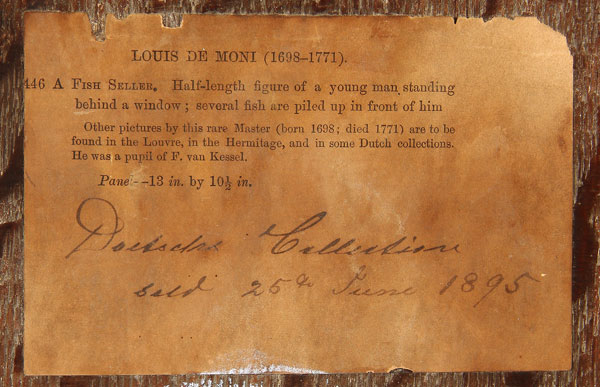 LOUIS DE MONI (1698–1771).
446 A FISH SELLER. Half-length figure of a young man standing
behind a window; several fish are piled up in front of him
Other pictures by this rare Master (born 1698; died 1771) are to be
found in the Louvre, in the Hermitage, and in some Dutch collections.
He was a pupil of F. van Kessel.
Panel—13 in. by 10½ in.
Doetsch Collection
sold 25th June 1895